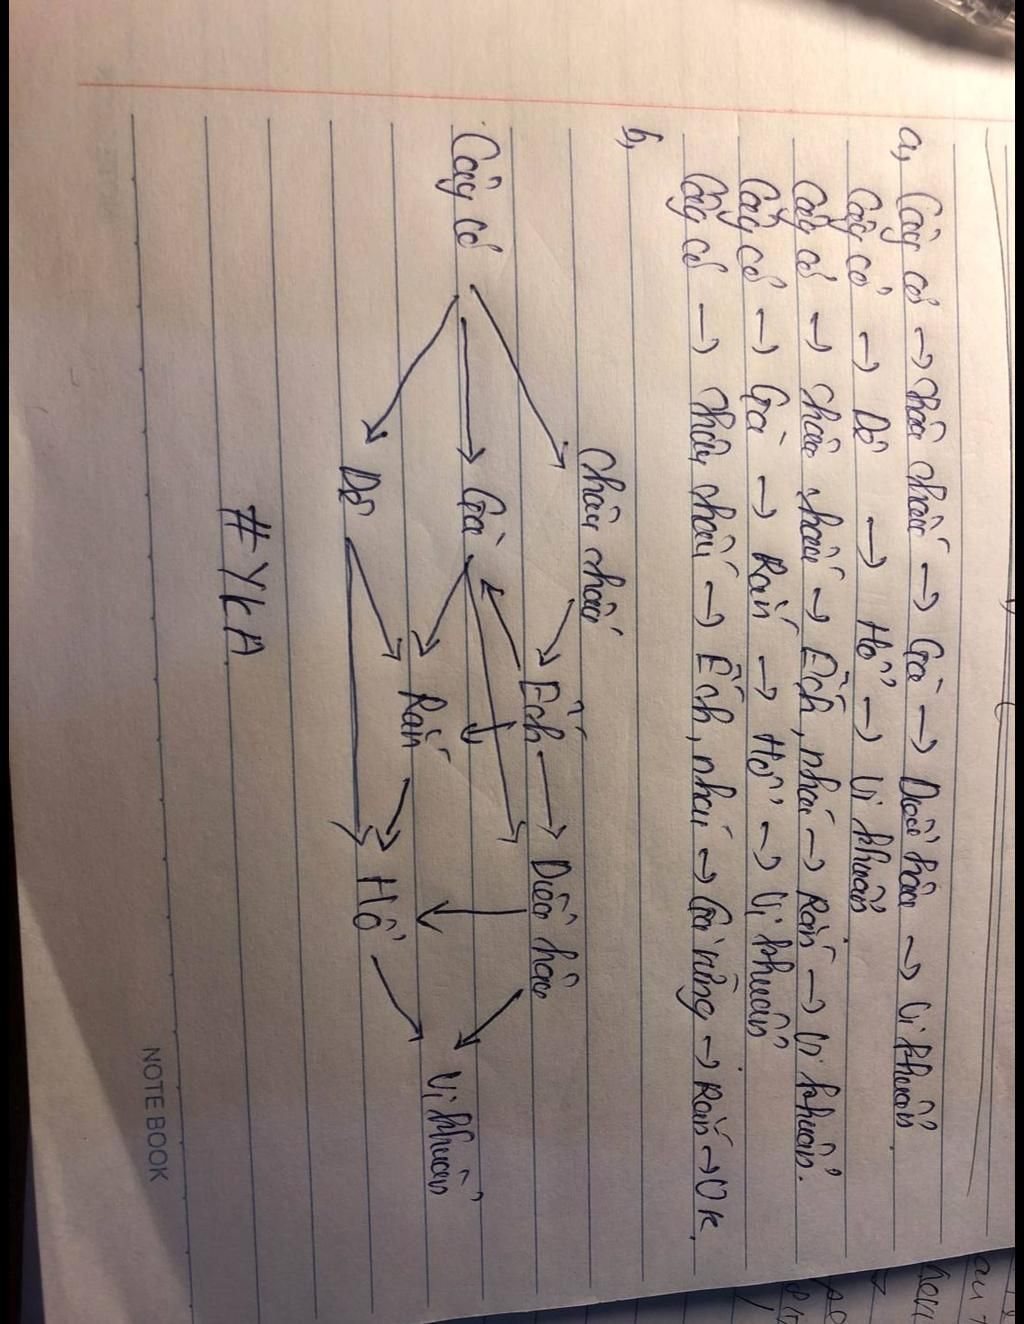 a, Cây cỏ → châu chấu → Gà → Diều hâu → Vi khuẩn.
Cây cỏ → Dê → Hổ → Vi khuẩn
Cây cỏ → châu chấu → Ếch, nhái → Rắn → Vi khuẩn.
Cây cỏ → Gà → Rắn → Hổ → Vi khuẩn
Cây cỏ → châu chấu → Ếch, nhái → Gà rừng → Rắn → VK.
b,
châu chấu
Ếch → Diều hâu
Cây cỏ → Gà
Rắn
Vi khuẩn
Dê
Hổ
#YKA
NOTE BOOK